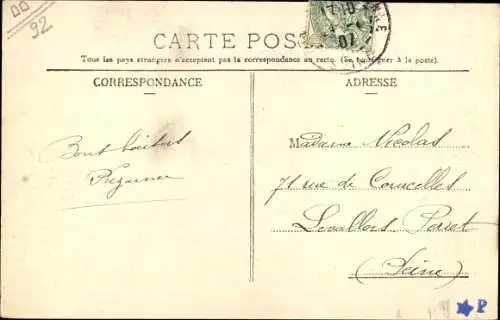 92
CARTE POSTALE
17-10
07
Tous les pays étrangers n'acceptent pas la correspondance au recto. (Se renseigner à la poste).
CORRESPONDANCE
ADRESSE
Bons baisers
Suzanne
Madame Nicolas
71 rue de Courcelles
Levallois Perret
(Seine)
P